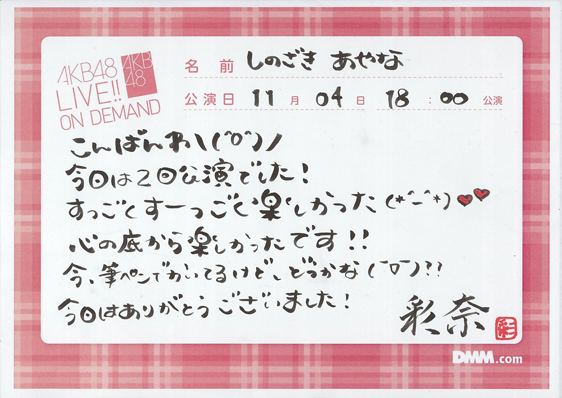 AKB48
LIVE!!
ON DEMAND
AKB
48
名前 しのざき あやな
公演日 11月04日 18:00公演
こんばんわ\(^o^)/
今日は2回公演でした!
すっごくすーっごく楽しかった(*^-^*)♥♥
心の底から楽しかったです!!
今、筆ペンでかいてるけど、どうかな(^o^)??
今日はありがとうございました!
彩奈
彩
DMM.com